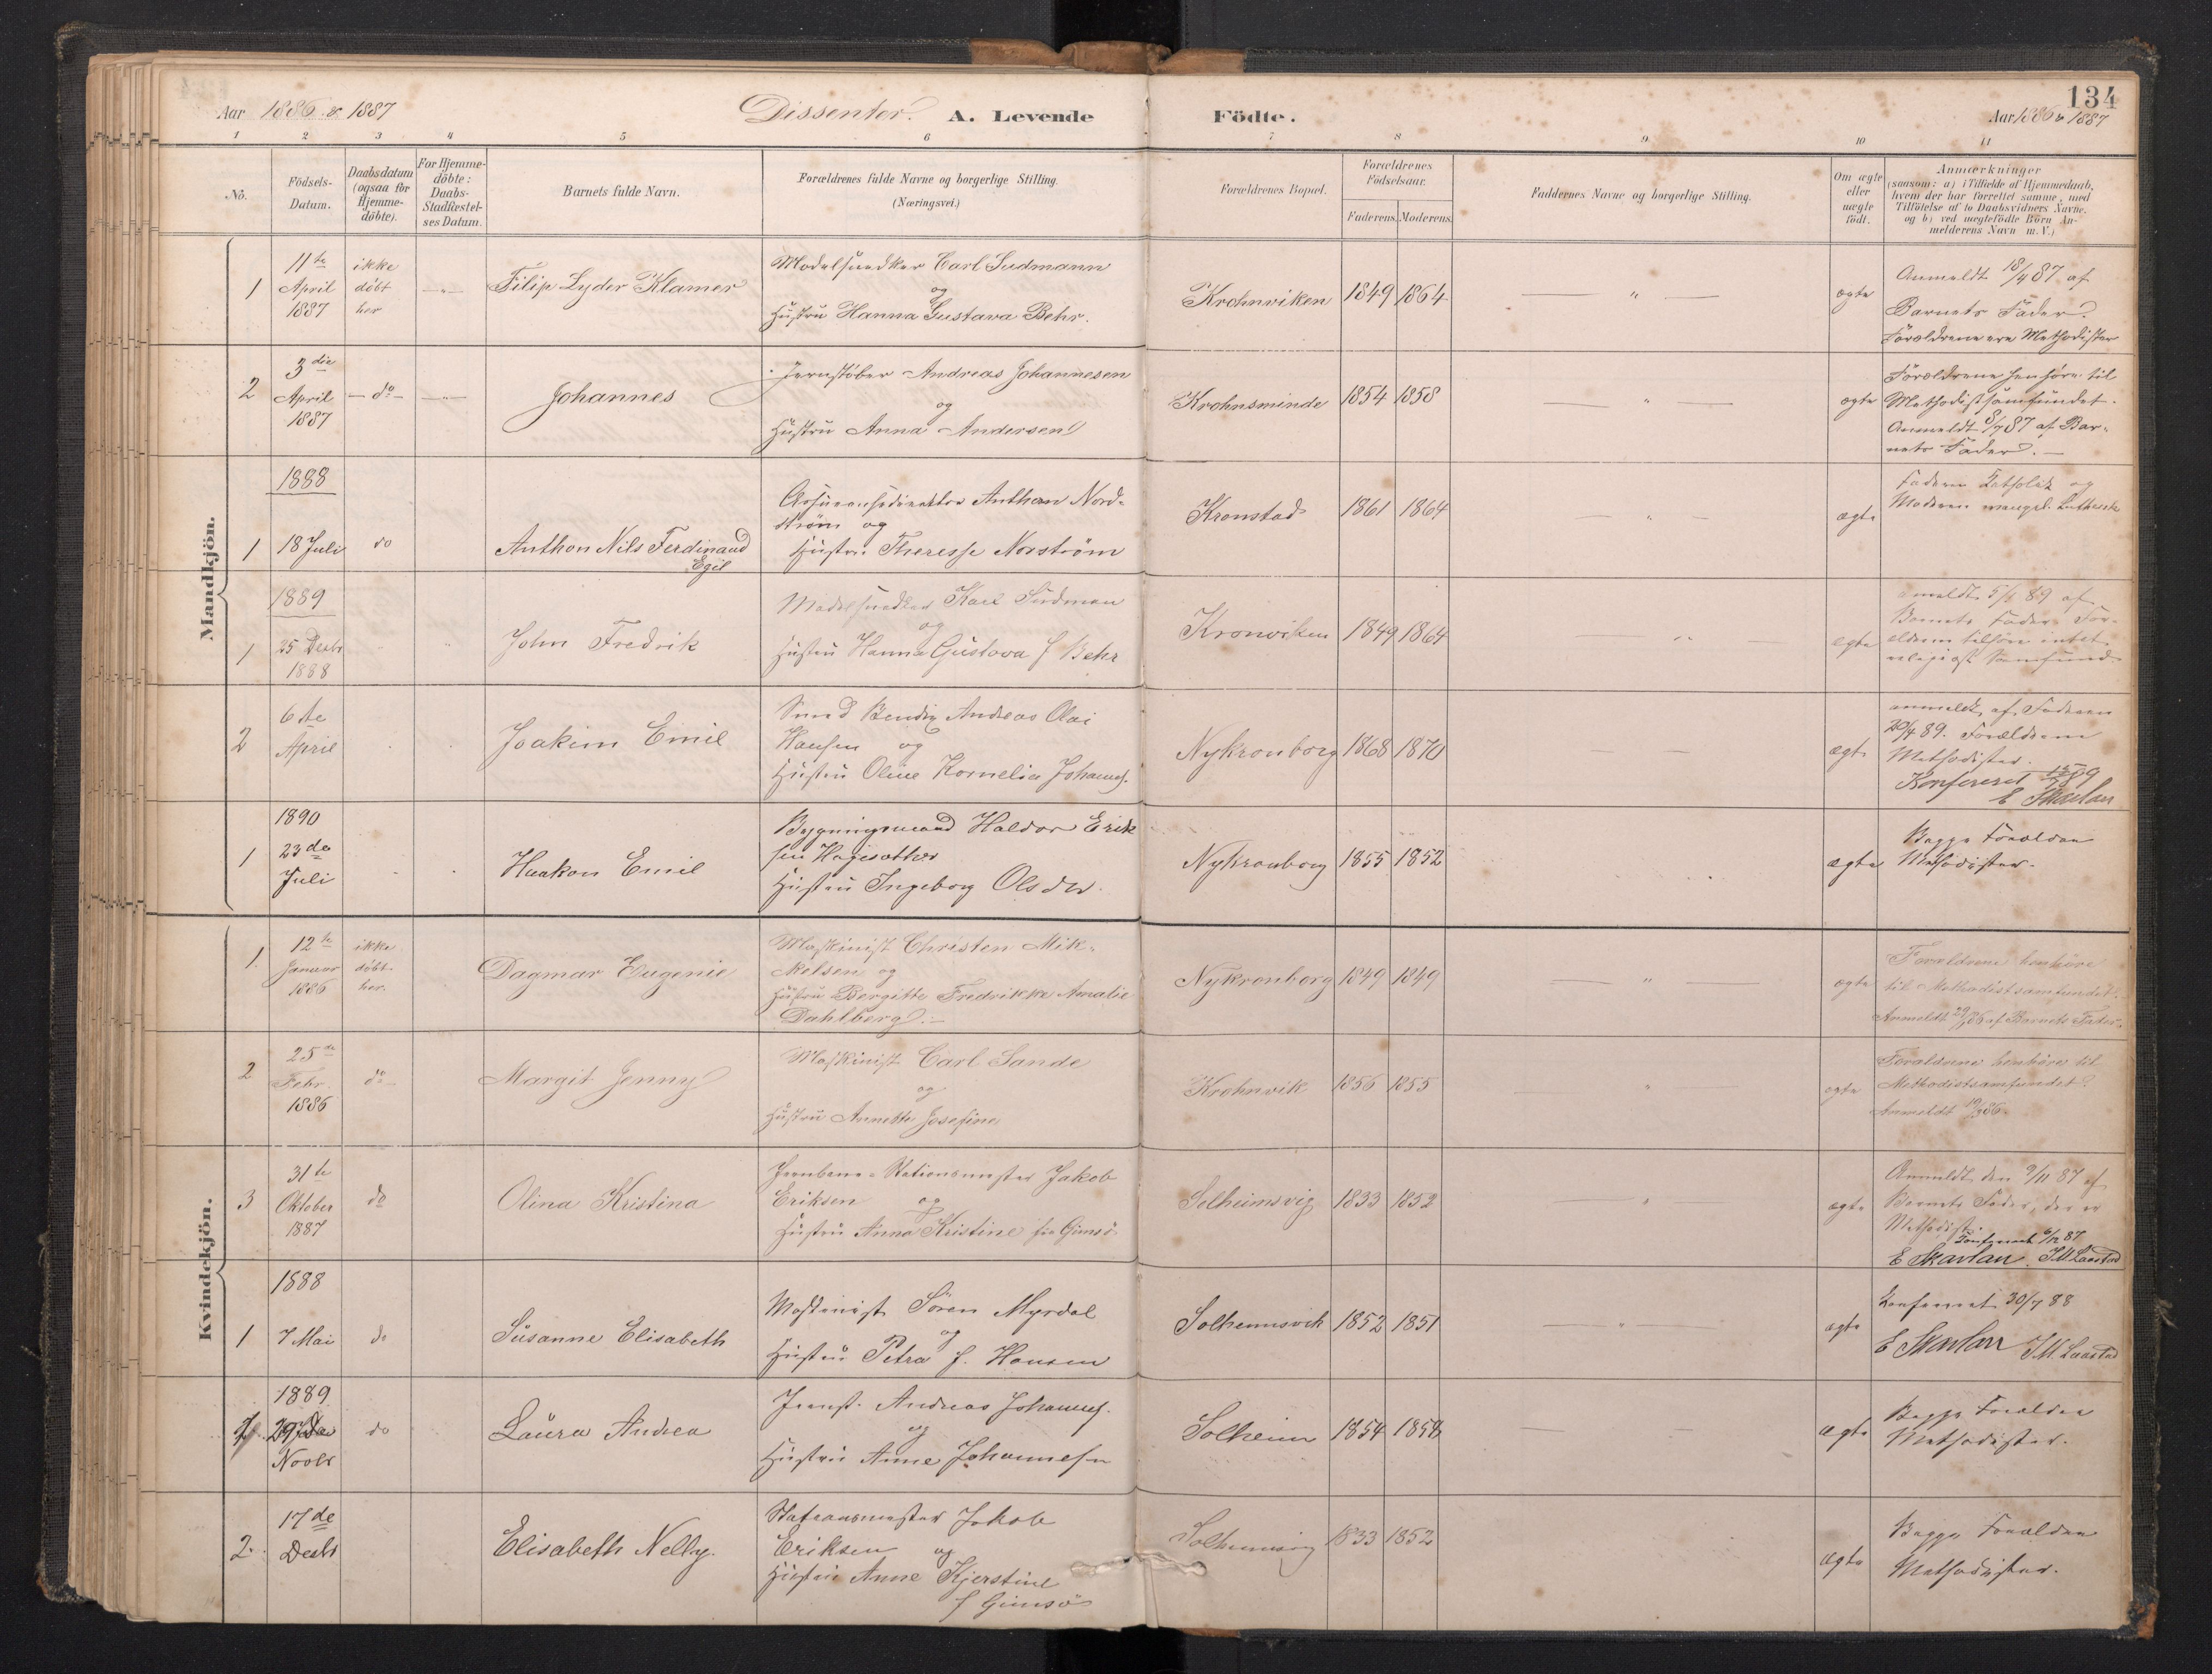 134
Aar 1886 & 1887
Dissenter. A. Levende Födte.
Aar 1886 & 1887
1 2 3 4 5 6 7 8 9 10 11
No.
Födsels-
Datum.
Daabsdatum
(ogsaa for
Hjemme-
döbte).
For Hjemme-
döbte:
Daabs-
Stadfæstel-
ses Datum.
Barnets fulde Navn.
Forældrenes fulde Navne og borgerlige Stilling.
(Næringsvei.)
Forældrenes Bopæl.
Forældrenes
Födselsaar.
Faderens. Moderens.
Faddernes Navne og borgerlige Stilling.
Om ægte
eller
uægte
födt.
Anmærkninger
(saasom: a) i Tilfælde af Hjemmedaab,
hvem der har forrettet samme, med
Tilföielse af to Daabsvidners Navne,
og b) ved uægtefödte Börn An-
melderens Navn m. V.)
Mandkjön.
1
11te
April
1887
ikke
döbt
her
Filip Lyder Klamer
Modelsnedker Carl Sudmann
og
Hustru Hanna Gustava Behr.
Krohnviken
1849 1864
ægte
Anmeldt 18/4 87 af
Barnets Fader.
Forældrene ere Methodister
2
3die
April
1887
do
Johannes
Jernstöber Andreas Johannesen
og
Hustru Anna Andersen
Krohnsminde
1854 1858
ægte
Forældrene henhöre til
Methodistsamfundet.
Anmeldt 8/7 87 af Bar-
nets Fader.
1888
1
18 Juli
do
Anthon Nils Ferdinand
Egil
Anthon Nord-
ström og
Hustru Theresse Norström
Kronstad
1861 1864
ægte
Faderen Katholik og
Moderen evangel. Luthersk
1889
1
25 Decbr
1888
John Fredrik
Modelsnedker Karl Sudman
og
Hustru Hanna Gustava f Behr
Kronviken
1849 1864
ægte
anmeldt 5/ 89 af
Barnets Fader. For-
ældrene tilhöre intet
religiöst Samfund
2
6te
April
Joakim Emil
Smed Bendix Andreas Olai
Hansen og
Hustru Oline Kornelia Johannes.
Nykronborg
1868 1870
ægte
anmeldt af Faderen
20/4 89. Forældrene
Methodister.
Konfereret 89
E Skavlan
1890
1
23de
Juli
Haakon Emil
Bygningsmand Haldor Erik
sen Hagesæther
Hustru Ingeborg Olsdtr.
Nykronborg
1855 1852
ægte
Begge Forældre
Methodister.
Kvindekjön.
1.
12te
Januar
1886
ikke
döbt
her.
Dagmar Eugenie
Maskinist Christen Mik-
kelsen og
Hustru Bergitte Fredrikke Amalie
Dahlberg.
Nykronborg
1849 1849
ægte
Forældrene henhöre
til Methodistsamfundet.
Anmeldt 29/ 86 af Barnets Fader.
2
25de
Febr.
1886
do
Margit Jenny
Maskinist Carl Sande
og
Hustru Annette Josefine
Krohnvik
1856 1855
ægte
Forældrene henhöre til
Methodistsamfundet.
Anmeldt 19/3 86.
3
31te
Oktober
1887
do
Olina Kristina
Jernbane-Stationsmester Jakob
Eriksen og
Hustru Anna Kristine fra Gimsö
Solheimsvig
1833 1852
ægte
Anmeldt den 9/11 87 af
Barnets Fader, der er
Methodist.
Konfereret 6/12 87
E Skavlan. J.M. Laastad
1888
1
7 Mai
do
Susanne Elisabeth
Maskinist Sören Myrdal
og
Hustru Petra f. Hansen
Solheimsvik
1852 1851
ægte
Konfereret 30/7 88
E Skavlan J.M. Laastad
1889
29de
Novbr
do
Laura Andrea
Jernst. Andreas Johannes.
og
Hustru Anne Johannesen
Solheim
1854 1858
ægte
Begge Forældre
Methodister.
2.
17de
Decbr
Elisabeth Nelly.
Stationsmester Jakob
Eriksen og
Hustru Anne Kjerstine
f Gimsö
Solheimsvig
1833 1852
ægte
Begge Forældre
Methodister.